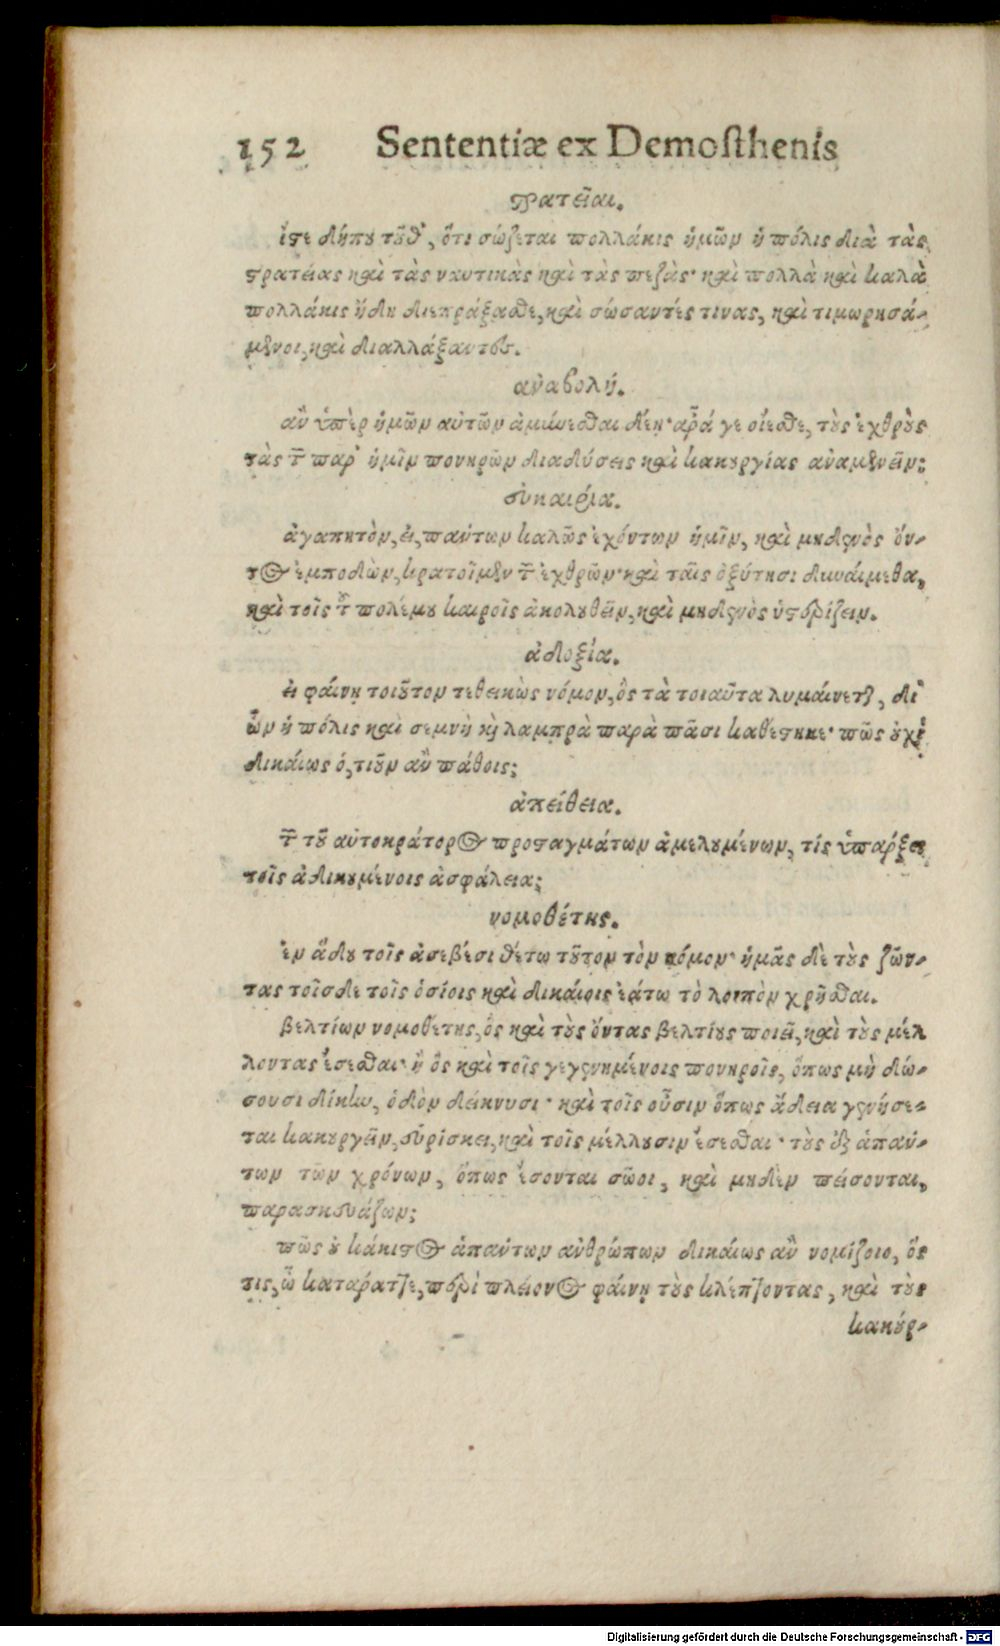 152 Sententiæ ex Demosthenis
στρατεῖαι.
ἴστε δήπου τοῦθ', ὅτι σώζεται πολλάκις ἡμῶν ἡ πόλις διὰ τὰς
στρατείας καὶ τὰς ναυτικὰς καὶ τὰς πεζὰς· καὶ πολλὰ καὶ καλὰ
πολλάκις ἤδη διεπράξασθε, καὶ σώσαντές τινας, καὶ τιμωρησά-
μενοι, καὶ διαλλάξαντες.
ἀναβολή.
ἂν ὑπὲρ ἡμῶν αὐτῶν ἀμύνεσθαι δέῃ· ἆρά γε οἴεσθε, τοὺς ἐχθροὺς
τὰς τῶν παρ' ἡμῖν πονηρῶν διαδύσεις καὶ κακουργίας ἀναμενεῖν;
εὐκαιρία.
ἀγαπητὸν, εἰ, πάντων καλῶς ἐχόντων ἡμῖν, καὶ μηδενὸς ὄν-
τος ἐμποδὼν, κρατοῖμεν τῶν ἐχθρῶν· καὶ ταῖς ὀξύτησι δυναίμεθα,
καὶ τοῖς τοῦ πολέμου καιροῖς ἀκολουθεῖν, καὶ μηδενὸς ὑστερίζειν.
ἀδοξία.
εἰ φαίνῃ τοιοῦτον τεθεικὼς νόμον, ὃς τὰ τοιαῦτα λυμαίνεται, δι'
ὧν ἡ πόλις καὶ σεμνὴ καὶ λαμπρὰ παρὰ πᾶσι καθέστηκε· πῶς οὐχὶ
δικαίως ὁ, τιοῦν ἂν πάθοις;
ἀπείθεια.
τῶν τοῦ αὐτοκράτορος προσταγμάτων ἀμελουμένων, τίς ὑπάρξει
τοῖς ἀδικουμένοις ἀσφάλεια;
νομοθέτης.
ἐν ᾅδου τοῖς ἀσεβέσι θέτω τοῦτον τὸν νόμον· ἡμᾶς δὲ τοὺς ζῶν-
τας τοῖσδε τοῖς ὁσίοις καὶ δικαίοις ἐάτω τὸ λοιπὸν χρῆσθαι.
βελτίων νομοθέτης, ὃς καὶ τοὺς ὄντας βελτίους ποιεῖ, καὶ τοὺς μέλ
λοντας ἔσεσθαι· ἢ ὃς καὶ τοῖς γεγενημένοις πονηροῖς, ὅπως μὴ δώ-
σουσι δίκην, ὁδὸν δείκνυσι· καὶ τοῖς οὖσιν ὅπως ἄδεια γενήσε-
ται κακουργεῖν, εὑρίσκει, καὶ τοῖς μέλλουσιν ἔσεσθαι· τοὺς ἐξ ἁπάν-
των τῶν χρόνων, ὅπως ἔσονται σῶοι, καὶ μηδὲν πείσονται,
παρασκευάζων;
πῶς οὐ κάκιστος ἁπάντων ἀνθρώπων δικαίως ἂν νομίζοιο, ὅς
τις, ὦ κατάρατε, περὶ πλείονος φαίνῃ τοὺς κλέπτοντας, καὶ τοὺς
κακούρ-
Digitalisierung gefördert durch die Deutsche Forschungsgemeinschaft - DFG